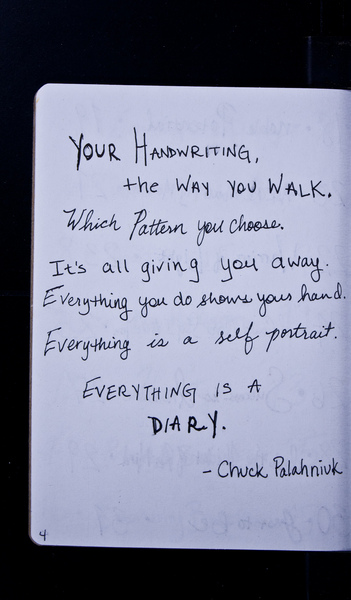 YOUR HANDWRITING,
the WAY YOU WALK.
Which Pattern you choose.
It's all giving you away.
Everything you do shows your hand.
Everything is a self portrait.
EVERYTHING IS A
DIARY.
- Chuck Palahniuk
4